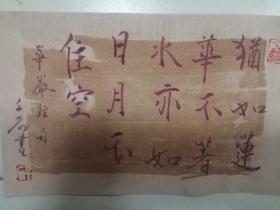 猶如蓮
華不著
水亦如
日月不
住空
華嚴經句
千石書